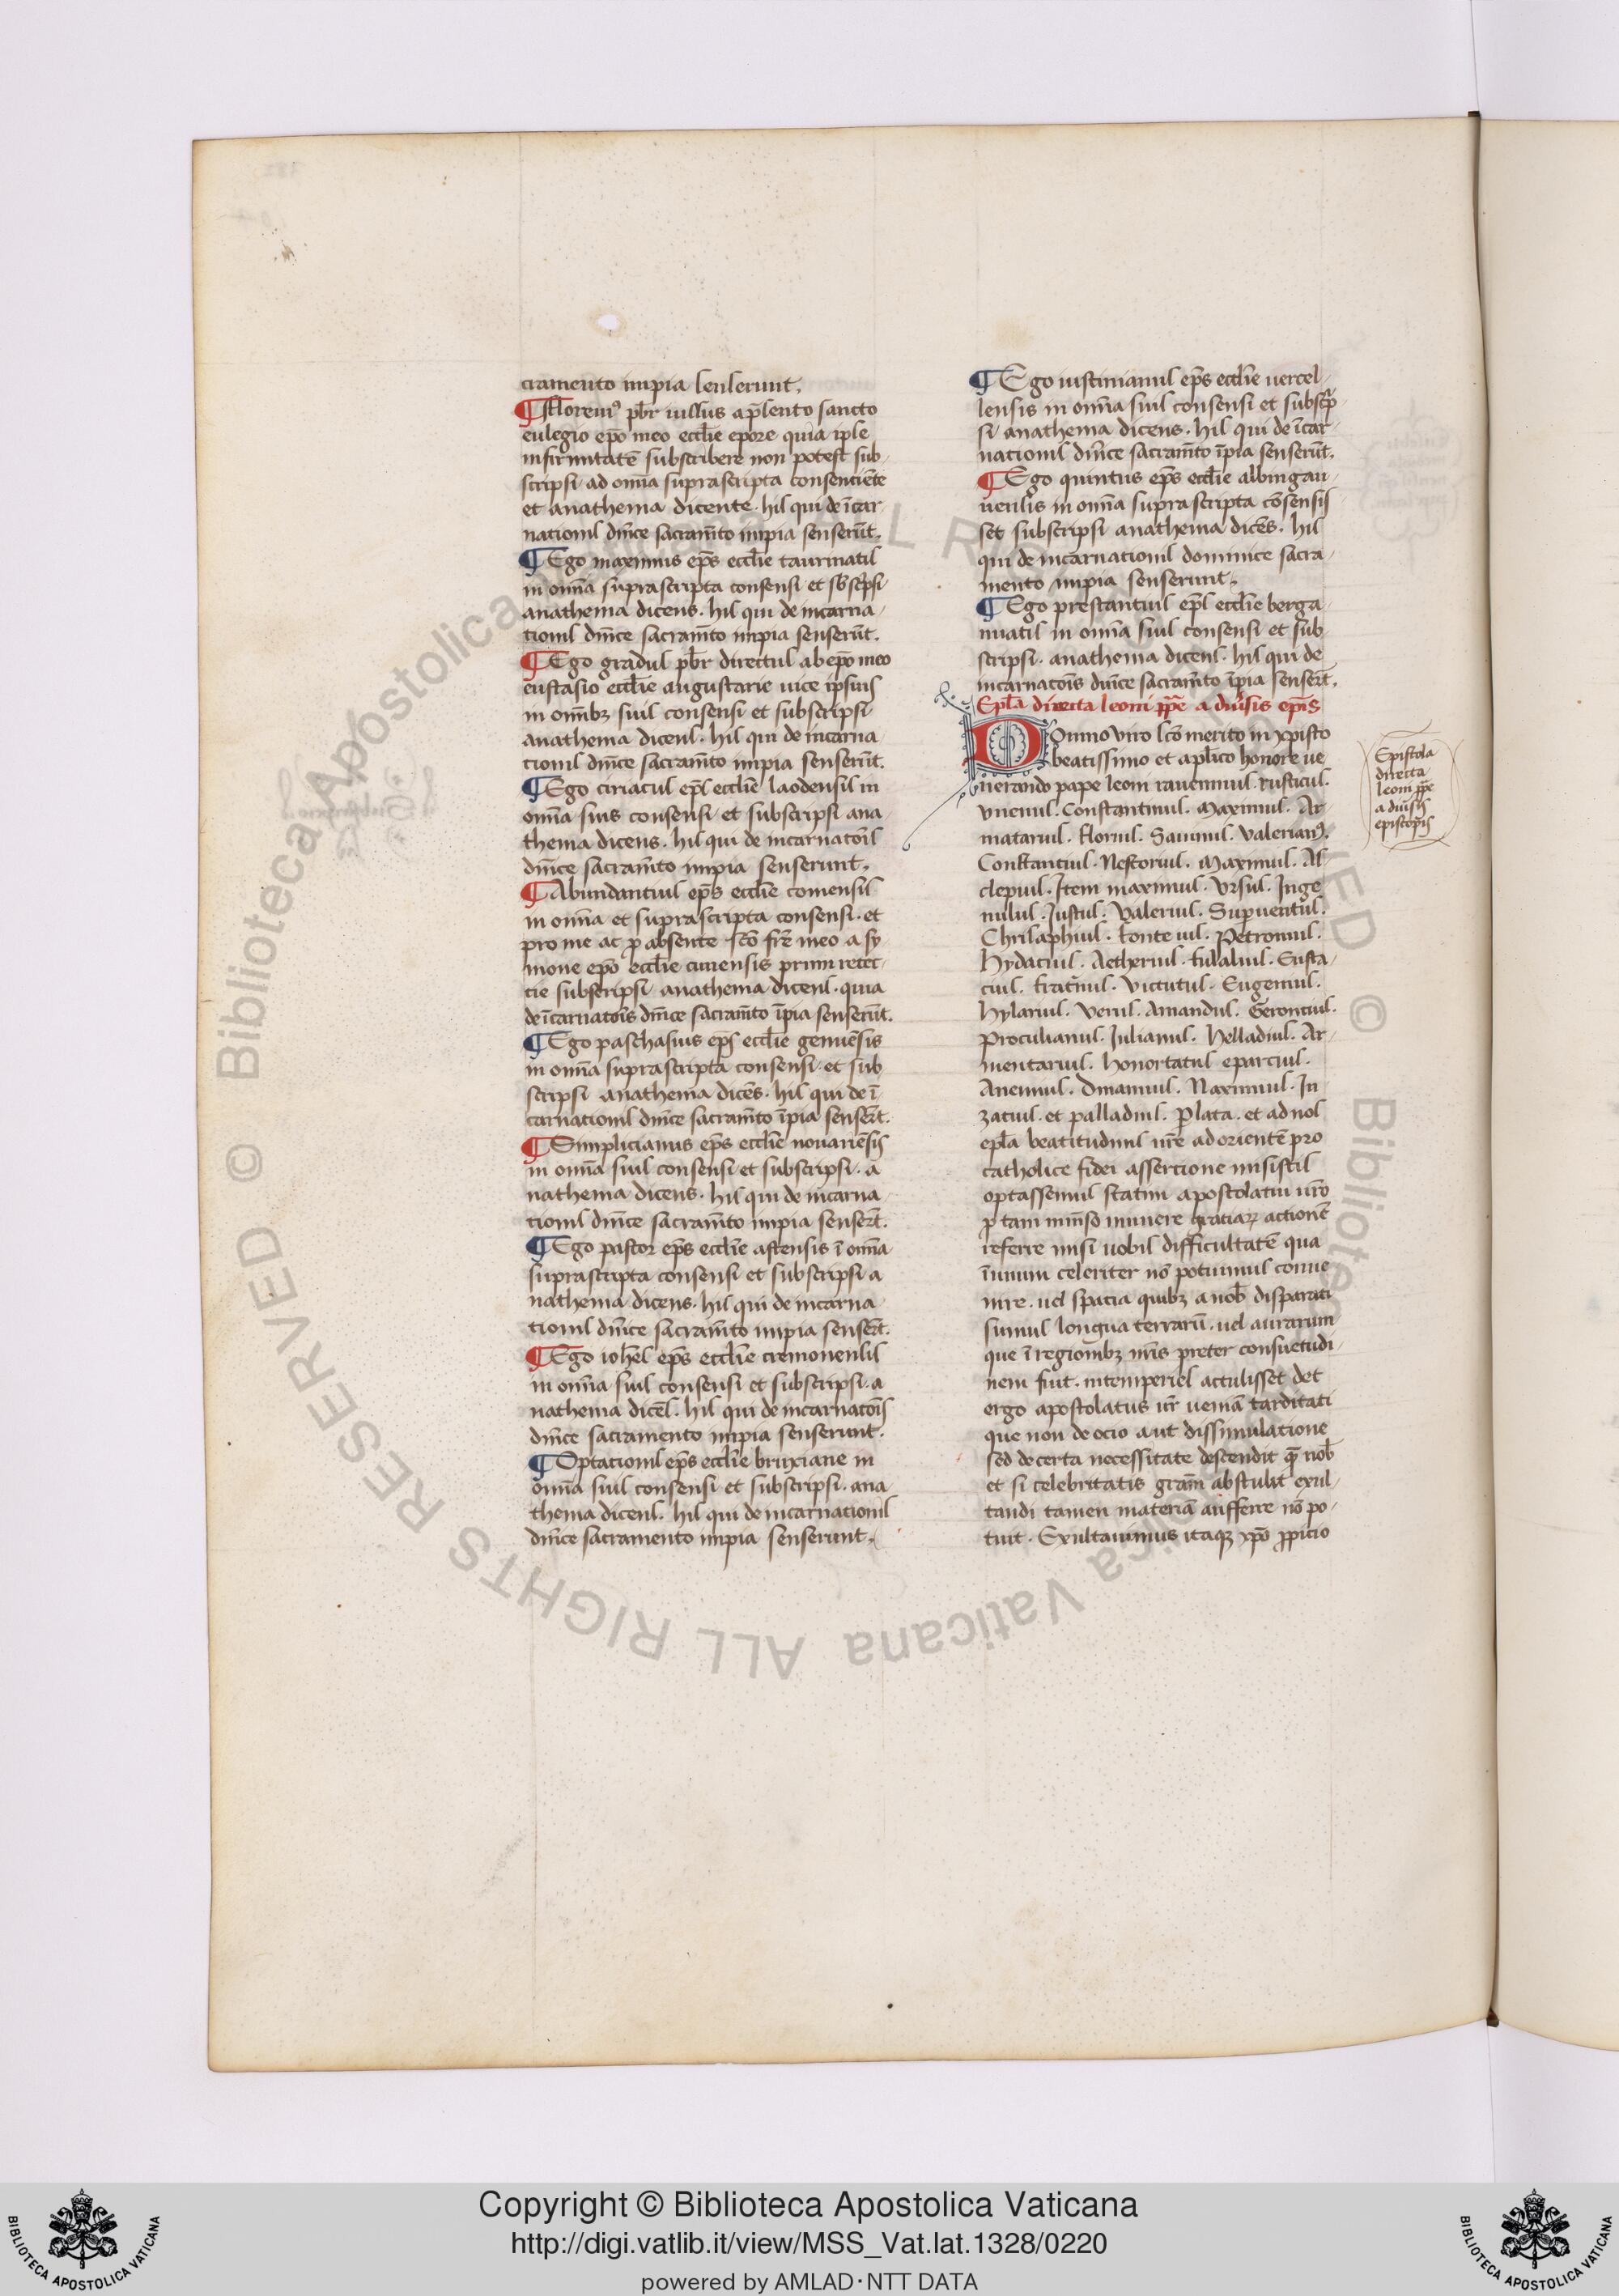 cramento impia senserunt.
¶ Floreni⁹ pb̄r iussus a p̄sento sancto
eulegio ep̄o meo eccl̄ie epore quia ipse
infirmitatē subscribere non potest sub-
scripsi. ad omnia suprascripta consenciēte
et anathema dicente. his qui de īcar
nationis dn̄ice sacramēto impia senserūt.
¶ Ego maximus ep̄s eccl̄ie taurinatis
in omn̄ia suprascripta consensi et sb̄scripsi
anathema dicens. his qui de incarna-
tionis dn̄ice sacram̄to impia senserūt.
¶ Ego gradus pb̄r directus ab ep̄o meo
eustasio eccl̄ie augustane uice ipsius
in omn̄ibꝫ suis consensi et subscripsi
anathema dicens. his qui de incarna
tionis dn̄ice sacram̄to impia senserūt.
¶ Ego ciriacus ep̄s eccl̄ie laodensis in
omn̄ia suis consensi et subscripsi ana-
thema dicens. his qui de incarnatōis
dn̄ice sacram̄to impia senserunt.
¶ Abundantius ep̄s eccl̄ie comensis
in omn̄ia et suprascripta consensi. et
pro me ac ꝓ absente scō fr̄e meo a sy
mone ep̄o eccl̄ie curiensis prim retec-
tie subscripsi anathema dicens. quia
de īcarnatōis dn̄ice sacram̄to īpia senserūt.
¶ Ego paschasius ep̄s eccl̄ie genuēsis
in omn̄ia suprascripta consensi. et sub
scripsi anathema dicēs. his qui de ī
carnationis dn̄ice sacram̄to īpia senser̄t.
¶ Simplicianus ep̄s eccl̄ie nouariēsis
in omn̄ia suis consensi et subscripsi. a
nathema dicens. his qui de incarna
tionis dn̄ice sacram̄to impia senser̄t.
¶ Ego pastor ep̄s eccl̄ie astensis ī omn̄ia
suprascripta consensi et subscripsi a
nathema dicens. his qui de incarna
tionis dn̄ice sacram̄to impia senser̄t.
¶ Ego ioh̄es ep̄s eccl̄ie cremonensis
in omn̄ia suis consensi et subscripsi. a
nathema dicēs. his qui de incarnatōis
dn̄ice sacramento impia senserunt.
¶ Optationis ep̄s eccl̄ie brixiane in
omn̄ia suis consensi et subscripsi. ana
thema dicens. his qui de incarnationis
dn̄ice sacramento impia senserunt.
¶ Ego iustinianus ep̄s eccl̄ie uercel-
lensis in omn̄ia suis consensi et subscrp̄-
si anathema dicens. his qui de īcar-
nationis dn̄ice sacram̄to īpia senserūt.
¶ Ego quintus ep̄s eccl̄ie albingau-
nensis in omn̄ia supra scripta cōsensis
set subscripsi anathema dicēs. his
qui de incarnationis dominice sacra-
mento impia senserunt.
¶ Ego prestantius ep̄s eccl̄ie berga-
matis in omn̄ia suis consensi et sub
scripsi. anathema dicens. his qui de
incarnatōis dn̄ice sacram̄to īpia senser̄t.
Ep̄la directa leoni pp̄e a diu̓sis ep̄is
Domno uiro scō merito in xp̄isto
beatissimo et ap̄lico honore ue
nerando pape leoni rauennus. rusticus.
Vnenus. Constantinus. Maximus. Ar-
matarus. florus. Sauinus. Valerian⁹.
Constantius. Nestorius. Maximus. As
clepius. Item maximus. Vrsus. Inge
nulus. Justus. Valerius. Supuentus.
Chrisaphius. fonteius. Petronius.
Hydacius. Aetherius. Eulalius. Eusta-
cius. fratn̓us. Victurus. Eugenius.
Hylarius. Verus. Amandus. Gerontius.
Proculianus. Iulianus. Helladius. Ar-
mentarius. honortatus eparcius.
Anemus. Dinamius. Maximus. In-
zatius. et palladius. Plata. et ad nos
ep̄la beatitudinis ur̄e ad orientē pro
catholice fidei assercione misistis
optassemus statim apostolatui ur̄o
ꝓ tam mīnso munere gratiaꝝ actionē
referre nisi uobis difficultatē qua
īunum celeriter nō potuimus conue
nire. uel spacia quibꝫ a nob̄ disparati
sumus longua terrarū. uel aurarum
que ī regionibꝫ nr̄is preter consuetudi-
nem fuit. intemperies actulisset det
ergo apostolatus ur̄ ueniā tarditati
que non de ocio aut dissimulatione
sed de certa necessitate descendit q̄ nob̄
et si celebritatis grām abstulit exul-
tandi tamen materiā aufferre nō po-
tuit. Exultauimus itaqꝫ xp̄o ꝓpicio
Epistola
directa
leoni pp̄e
a diuisis
episcopis
© Biblioteca Apostolica Vaticana ALL RIGHTS RESERVED
Copyright © Biblioteca Apostolica Vaticana
http://digi.vatlib.it/view/MSS_Vat.lat.1328/0220
powered by AMLAD·NTT DATA
BIBLIOTECA APOSTOLICA VATICANA
BIBLIOTECA APOSTOLICA VATICANA